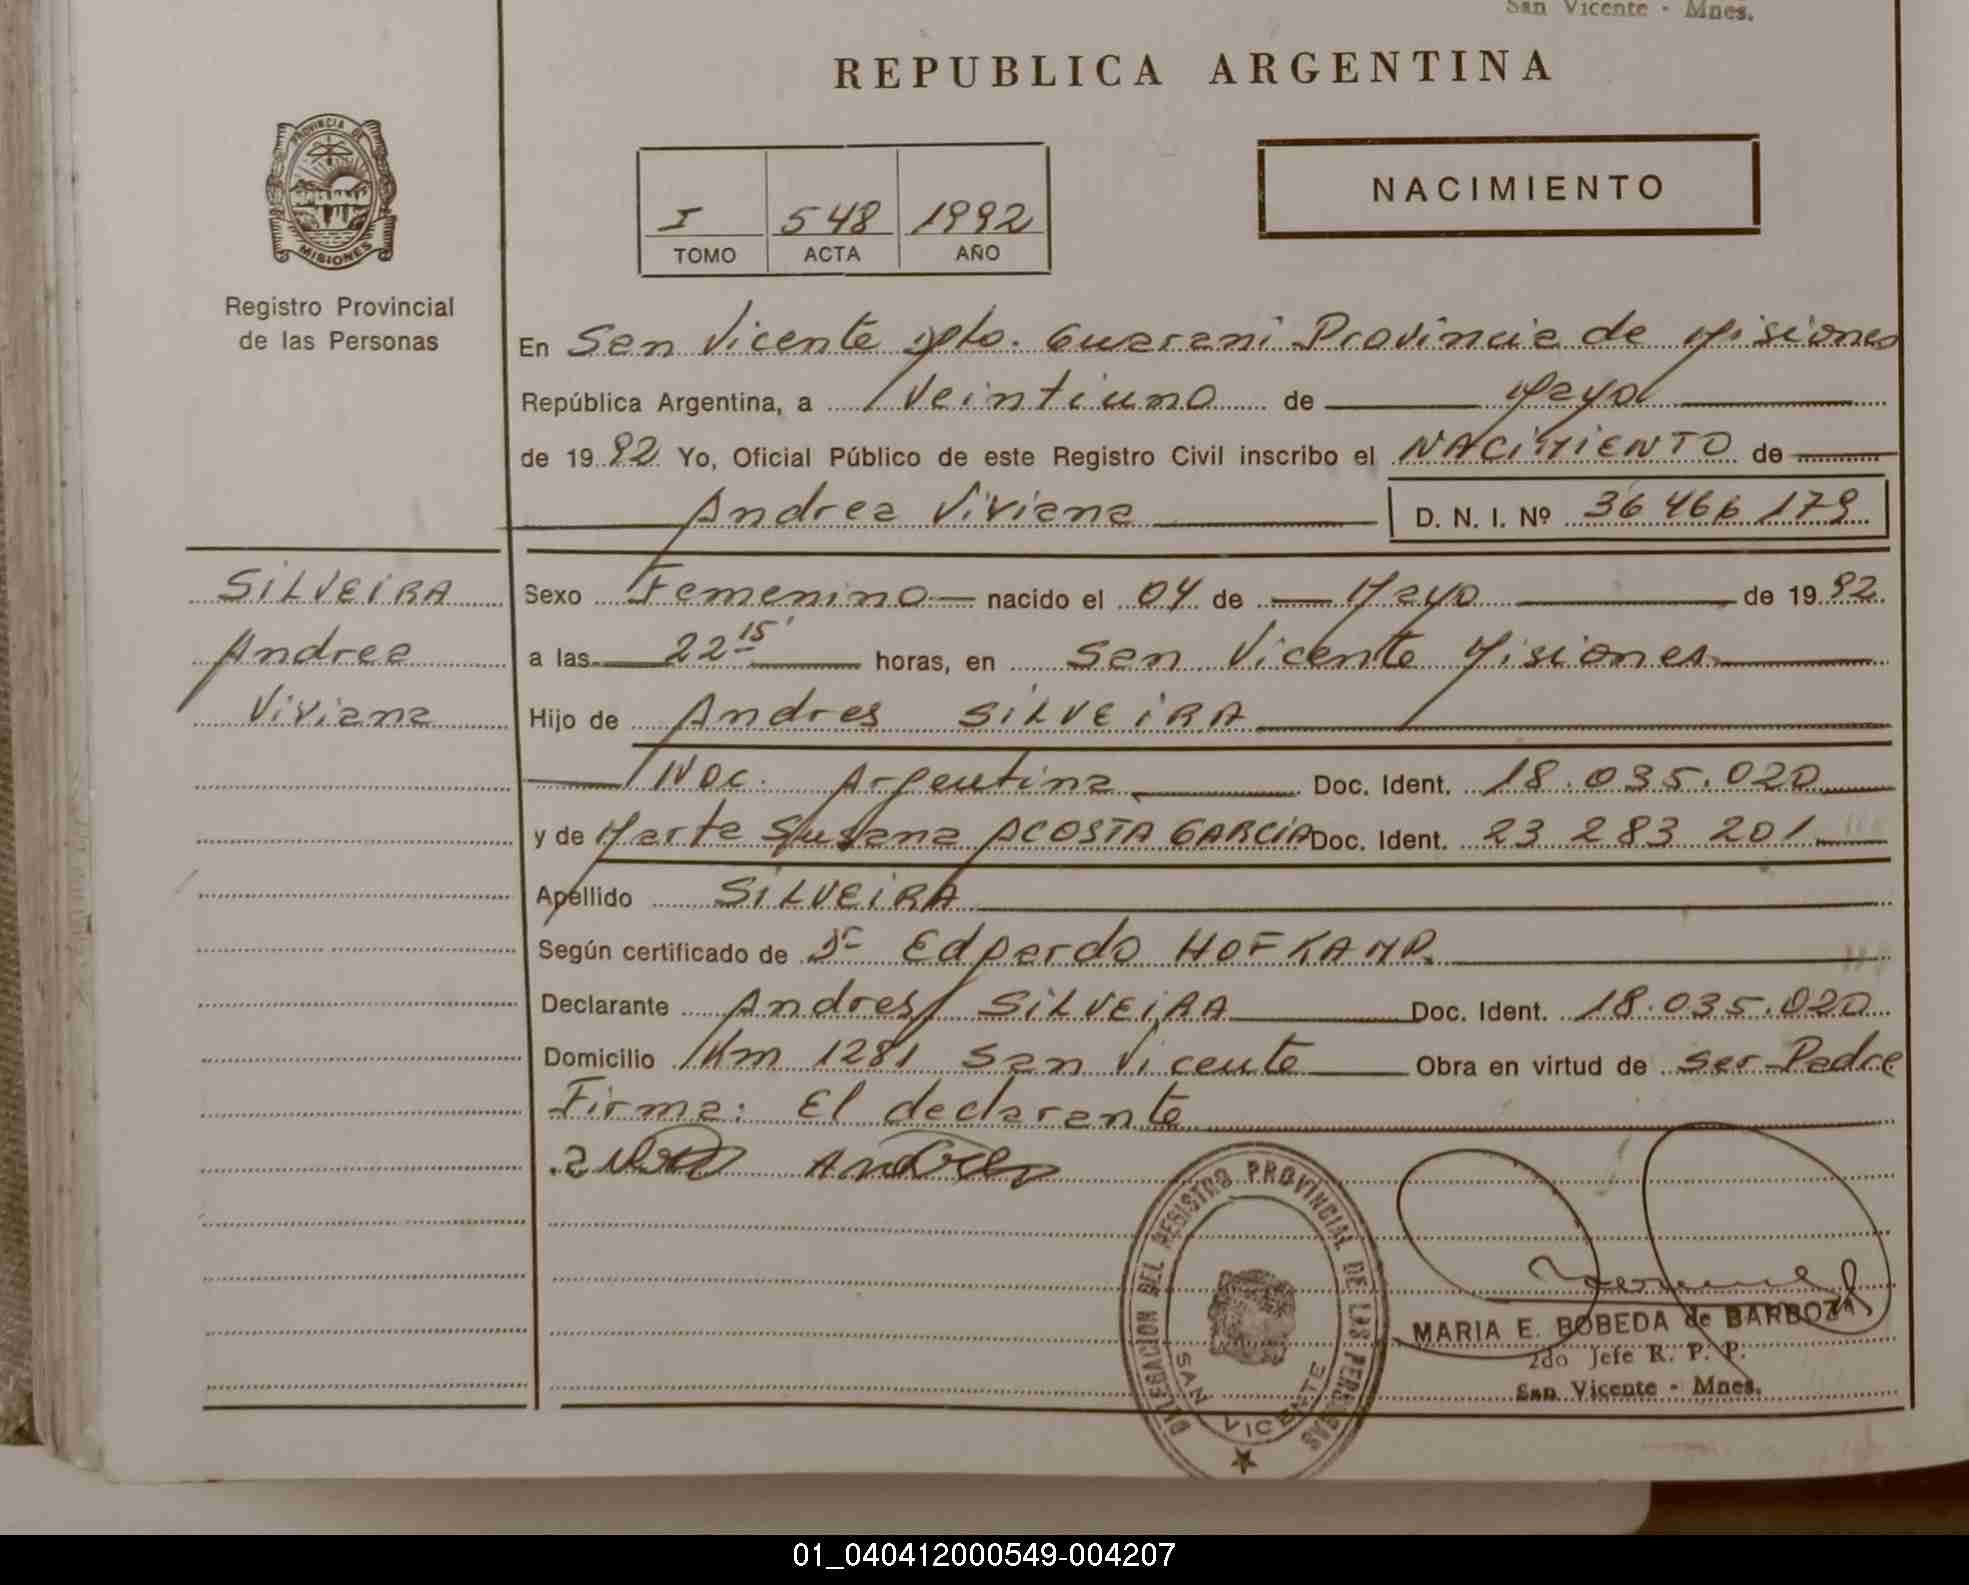 San Vicente - Mnes.
REPUBLICA ARGENTINA
PROVINCIA DE
MISIONES
Registro Provincial
de las Personas
I 548 1992
TOMO ACTA AÑO
NACIMIENTO
En San Vicente Dpto. Guarani Provincia de Misiones
República Argentina, a Veintiuno de Mayo
de 1992 Yo, Oficial Público de este Registro Civil inscribo el NACIMIENTO de
Andrea Viviana D. N. I. Nº 36 466 179
SILVEIRA
Andrea
Viviana
Sexo Femenino nacido el 04 de Mayo de 1992
a las 22 15' horas, en San Vicente Misiones
Hijo de Andres SILVEIRA
Nac. Argentina Doc. Ident. 18.035.020
y de Marta Susana ACOSTA GARCIA Doc. Ident. 23 283 201
Apellido SILVEIRA
Según certificado de Dr Edgardo HOFKAMP.
Declarante Andres SILVEIRA Doc. Ident. 18.035.020
Domicilio Km 1281 San Vicente Obra en virtud de ser Padre
Firma: El declarante
Andres
DELEGACION DEL REGISTRO PROVINCIAL DE LAS PERSONAS
SAN VICENTE
MARIA E. BOBEDA de BARBOZA
2do Jefe R. P. P.
San Vicente - Mnes.
01_040412000549-004207